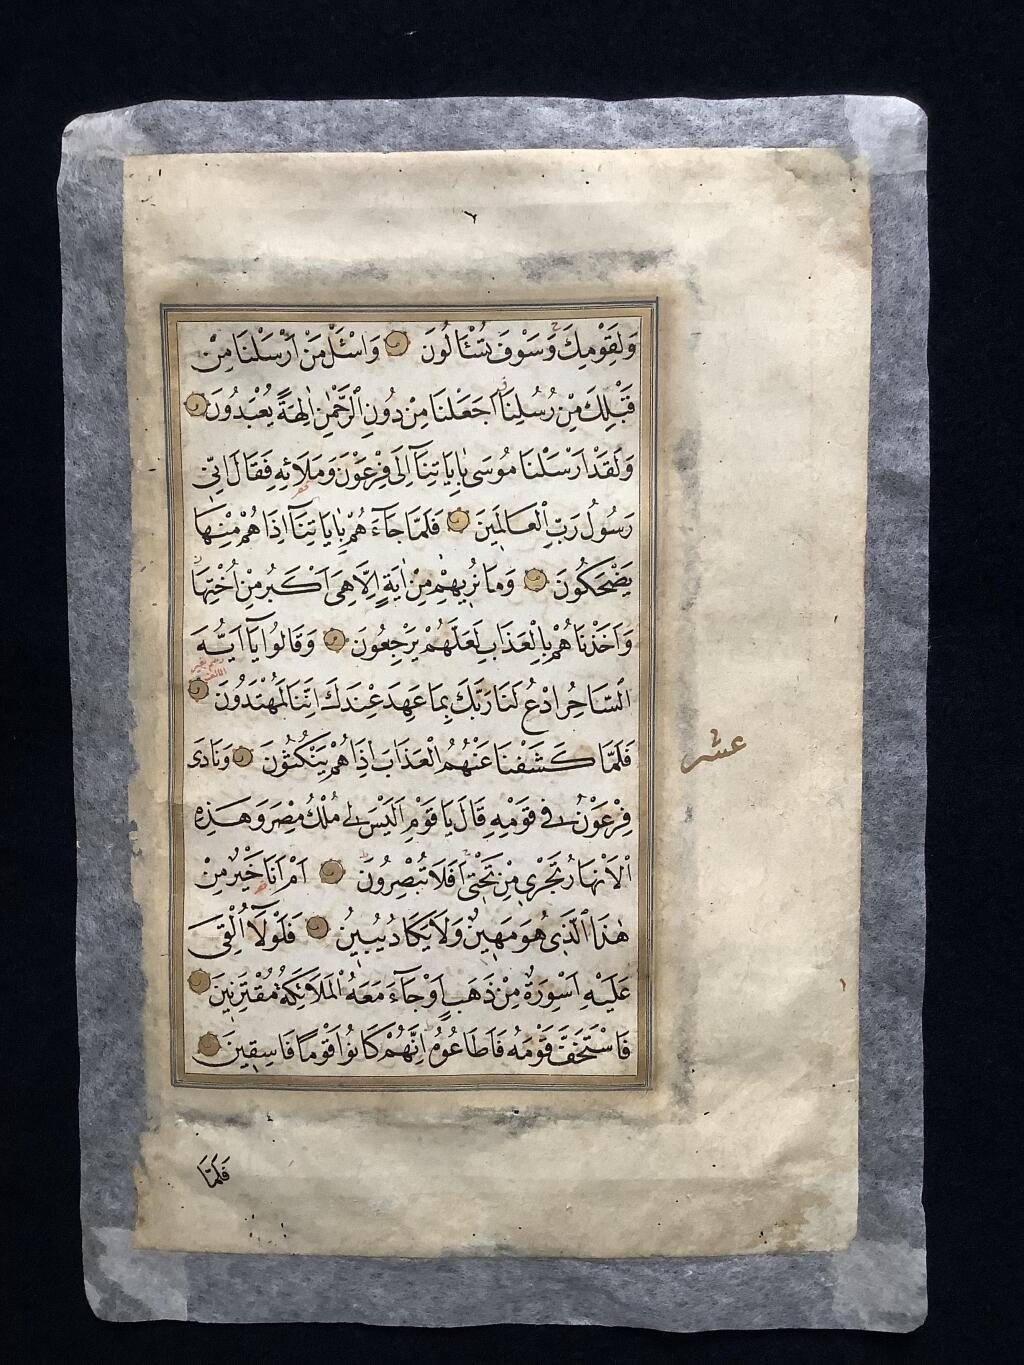 وَلِقَوْمِكَ وَسَوْفَ تُسْـَٔالُونَ وَاسْـَٔلْ مَنْ اَرْسَلْنَا مِنْ
قَبْلِكَ مِنْ رُسُلِنَا اَجَعَلْنَا مِنْ دُونِ الرَّحْمٰنِ اٰلِهَةً يُعْبَدُونَ
وَلَقَدْ اَرْسَلْنَا مُوسَى بِاٰيَاتِنَآ اِلَى فِرْعَوْنَ وَمَلَائِهِ فَقَالَ اِنِّى
رَسُولُ رَبِّ الْعَالَمِينَ فَلَمَّا جَآءَهُمْ بِاٰيَاتِنَآ اِذَا هُمْ مِنْهَا
يَضْحَكُونَ وَمَا نُرِيهِمْ مِنْ اٰيَةٍ اِلَّا هِىَ اَكْبَرُ مِنْ اُخْتِهَا
وَاَخَذْنَاهُمْ بِالْعَذَابِ لَعَلَّهُمْ يَرْجِعُونَ وَقَالُوا يَآ اَيُّهَ
السَّاحِرُ ادْعُ لَنَا رَبَّكَ بِمَا عَهِدَ عِنْدَكَ اِنَّنَا لَمُهْتَدُونَ
فَلَمَّا كَشَفْنَا عَنْهُمُ الْعَذَابَ اِذَا هُمْ يَنْكُثُونَ وَنَادَى
عشر
فِرْعَوْنُ فِى قَوْمِهِ قَالَ يَا قَوْمِ اَلَيْسَ لِى مُلْكُ مِصْرَ وَهَذِهِ
الْاَنْهَارُ تَجْرِى مِنْ تَحْتِى اَفَلَا تُبْصِرُونَ اَمْ اَنَا خَيْرٌ مِنْ
هٰذَا الَّذِى هُوَ مَهِينٌ وَلَا يَكَادُ يُبِينُ فَلَوْلَآ اُلْقِىَ
عَلَيْهِ اَسْوِرَةٌ مِنْ ذَهَبٍ اَوْ جَآءَ مَعَهُ الْمَلَائِكَةُ مُقْتَرِنِينَ
فَاسْتَخَفَّ قَوْمَهُ فَاَطَاعُوهُ اِنَّهُمْ كَانُوا قَوْمًا فَاسِقِينَ
فَلَمَّا